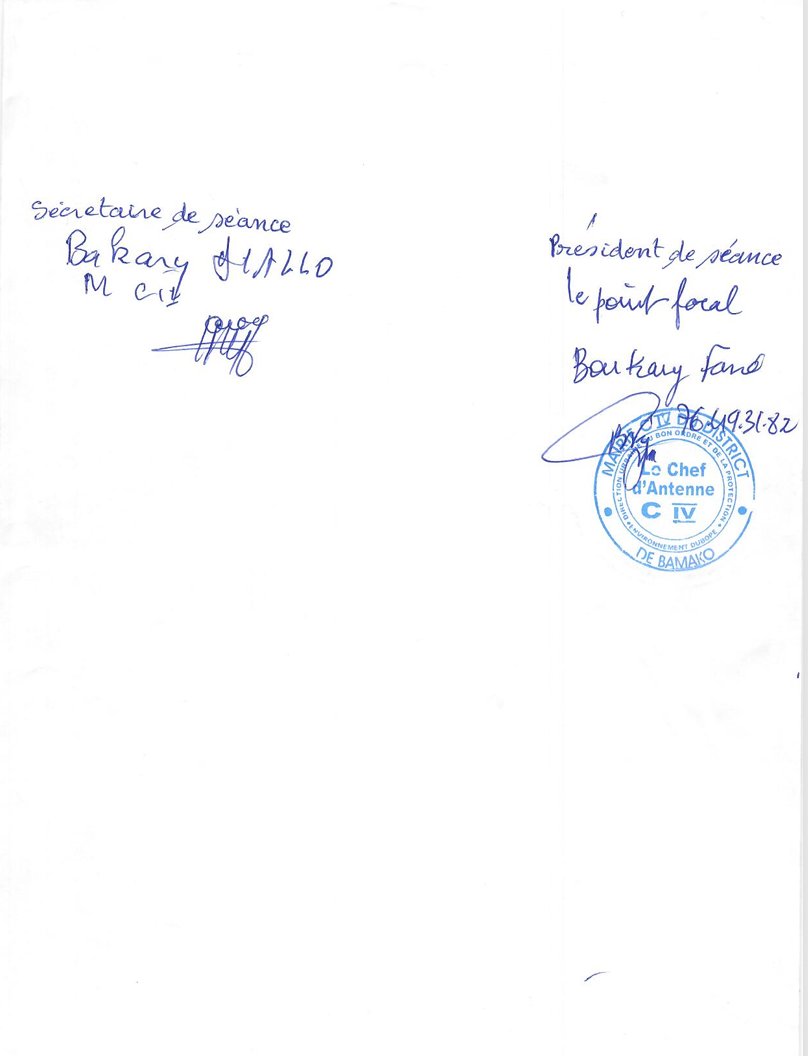 Sécretaire de séance
Bakary DIALLO
M CIV
Président de séance
le point focal
Boukary Fané
76.49.31.82
MAIRIE C IV DU DISTRICT
DE BAMAKO
DIRECTION URBAINE DU BON ORDRE ET DE LA PROTECTION
ENVIRONNEMENT DUBOPE
Le Chef
d'Antenne
C IV